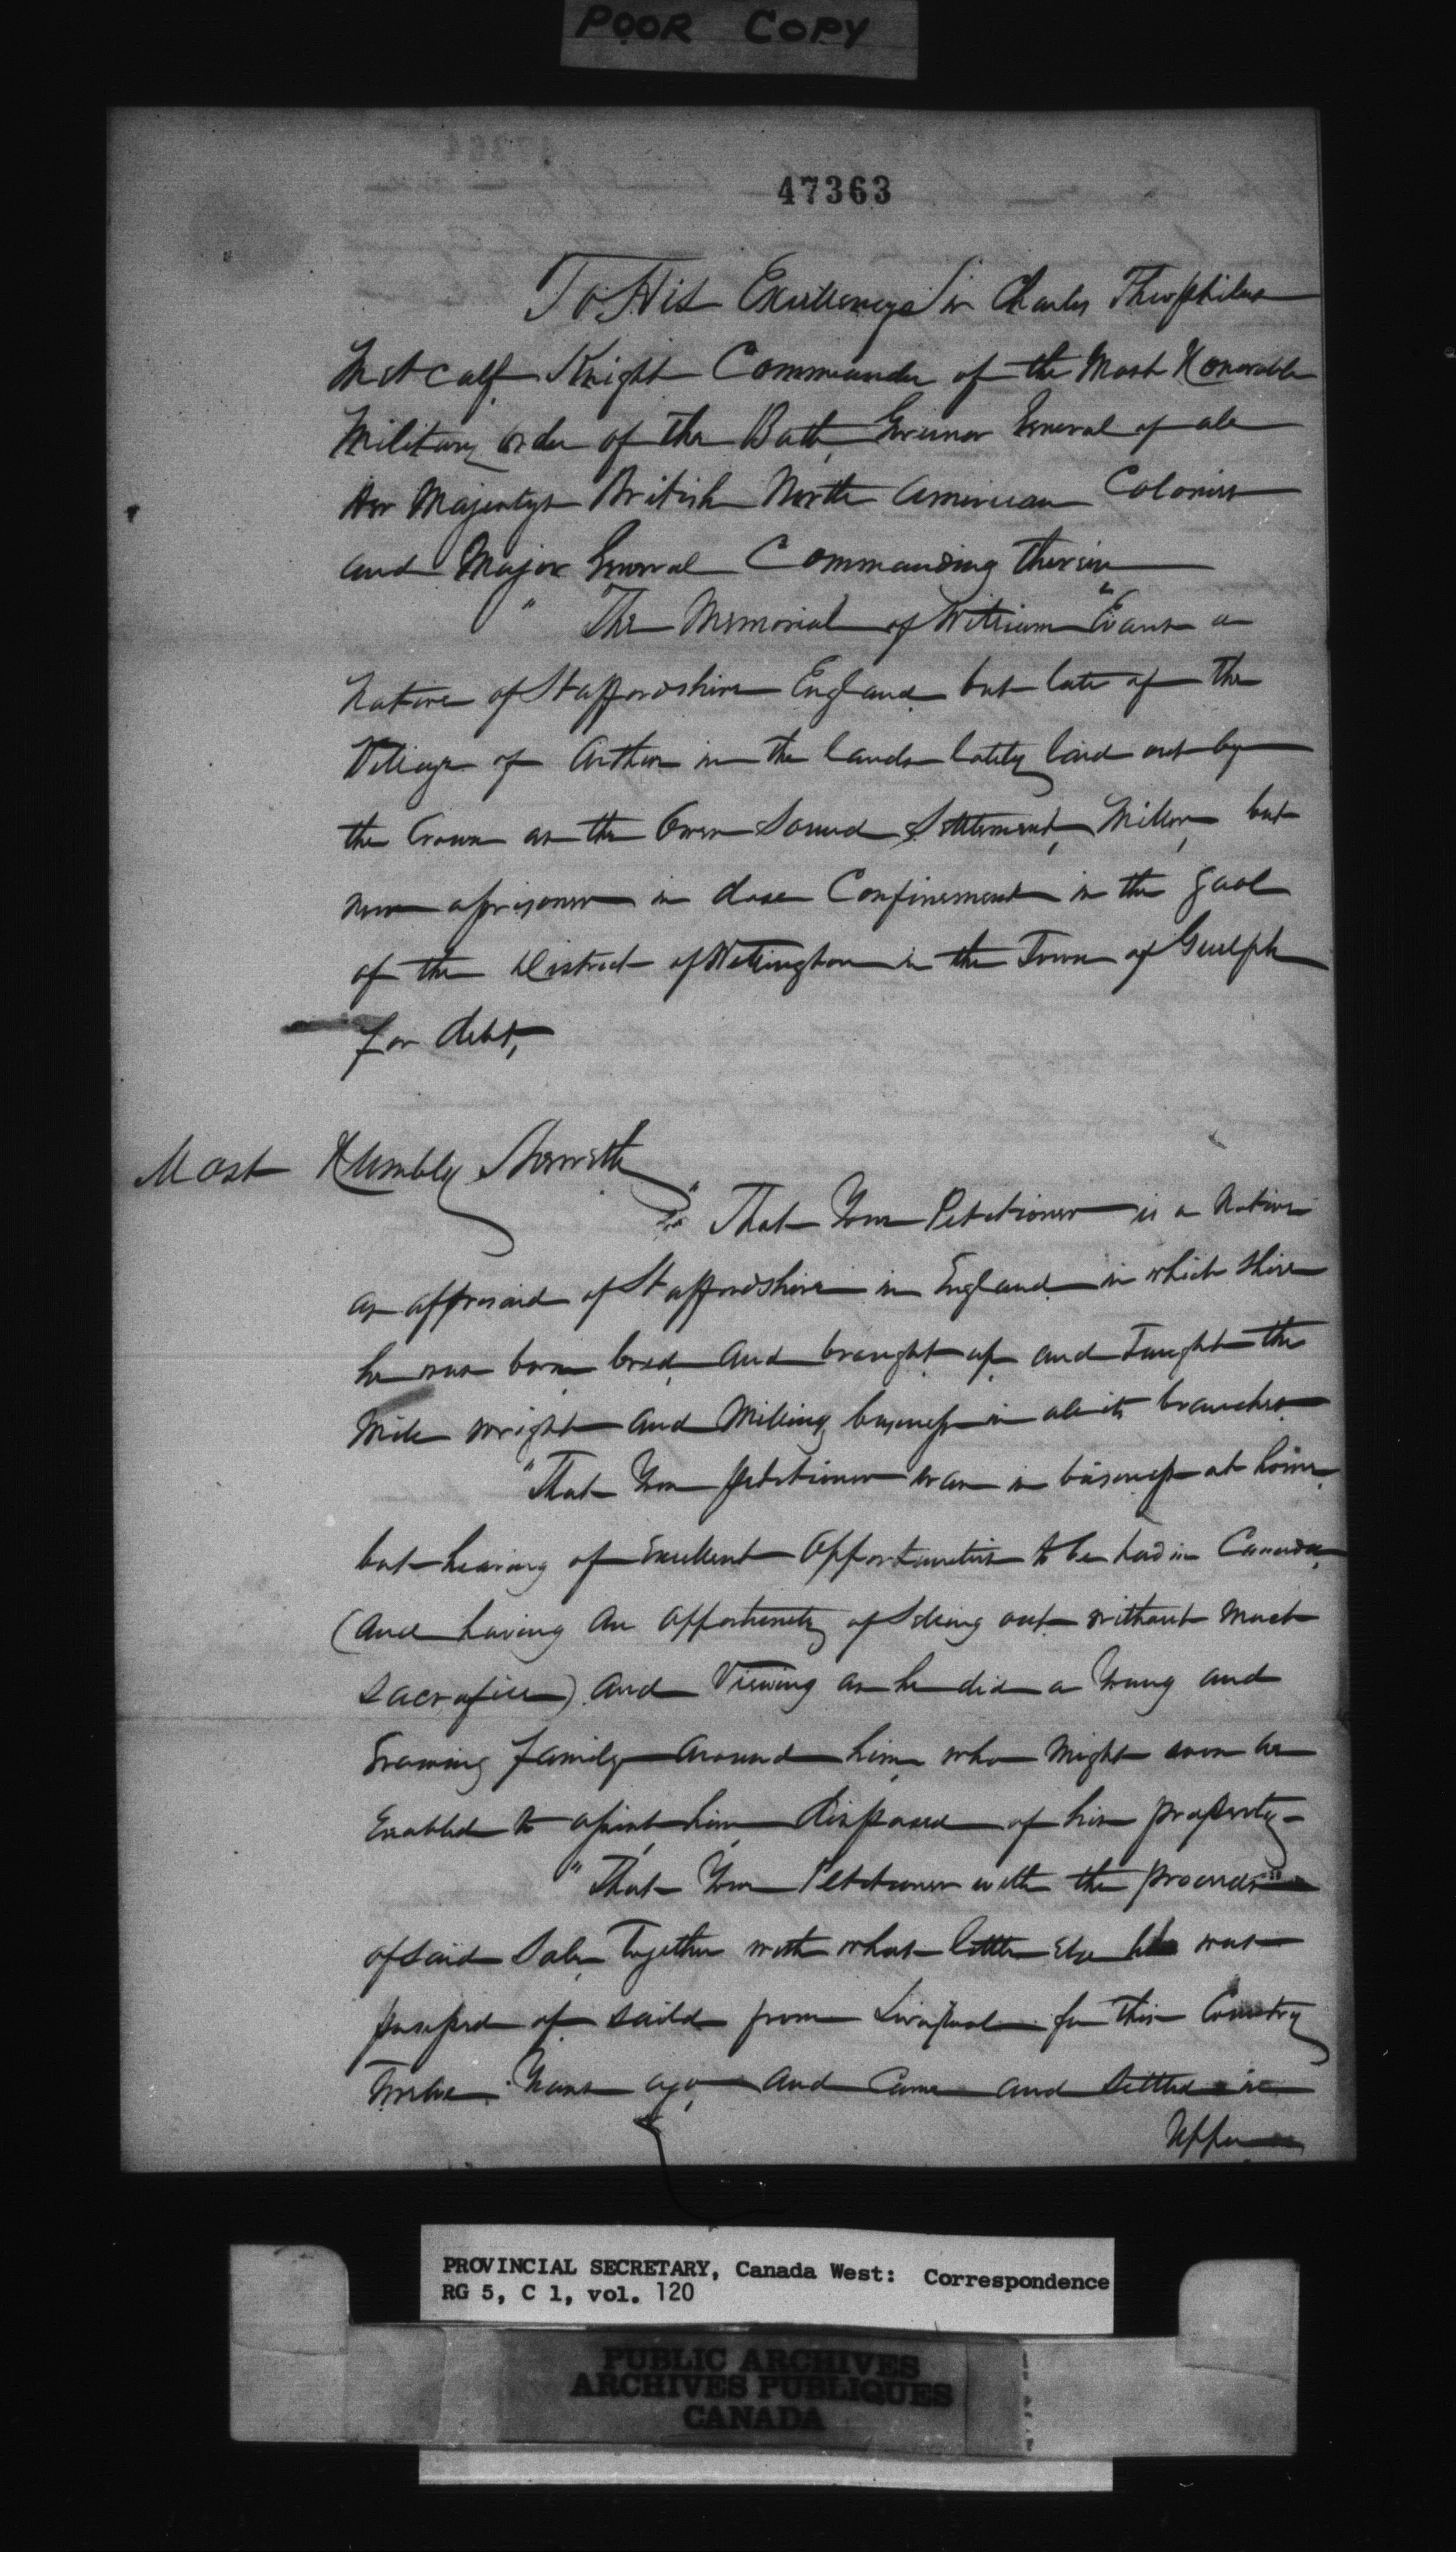 POOR COPY
47363
To His Excellency Sir Charles Theophilus
Metcalf Knight Commander of the Most Honorable
Military order of the Bath, Governor General of all
Her Majestys British North American Colonies
and Major General Commanding therein
" The Memorial of William Evans a
Native of Staffordshire England but late of the
Village of Arthur in the lands lately laid out by
the Crown as the Owen Sound Settlement, Miller, but
now a prisoner in close Confinement in the gaol
of the District of Wellington in the Town of Guelph
for debt,
Most Humbly Sheweth
" That Your Petitioner is a Native
as afforsaid of Staffordshire in England in which Shire
he was born bred and brought up and Taught the
Mill wright and Milling business in all its branches
" That Your petitioner was in business at home
but hearing of Excellent Opportunities to be had in Canada,
(and having an opportunity of Selling out without much
Sacrafice) and Viewing as he did a Young and
Growing family around him who might soon be
Enabled to assist him disposed of his property -
" That Your Petitioner with the proceeds
of said Sale, Together with what little Else he was
possessed of saild from Liverpool for this Country
Twelve Years ago and Came and Settled in
Upper
PROVINCIAL SECRETARY, Canada West: Correspondence
RG 5, C 1, vol. 120
PUBLIC ARCHIVES
ARCHIVES PUBLIQUES
CANADA